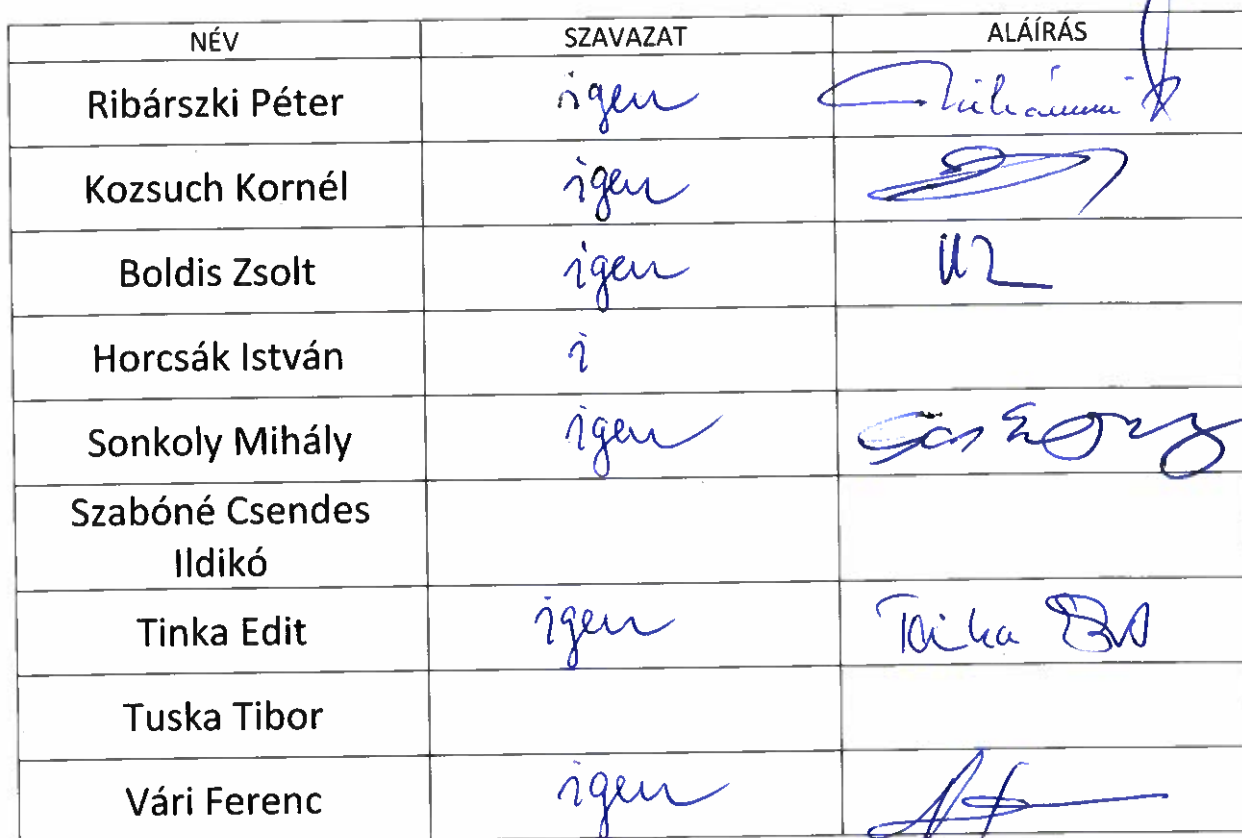 NÉV SZAVAZAT ALÁÍRÁS
Ribárszki Péter igen
Kozsuch Kornél igen
Boldis Zsolt igen
Horcsák István i
Sonkoly Mihály igen
Szabóné Csendes
Ildikó
Tinka Edit igen Tinka Edit
Tuska Tibor
Vári Ferenc igen